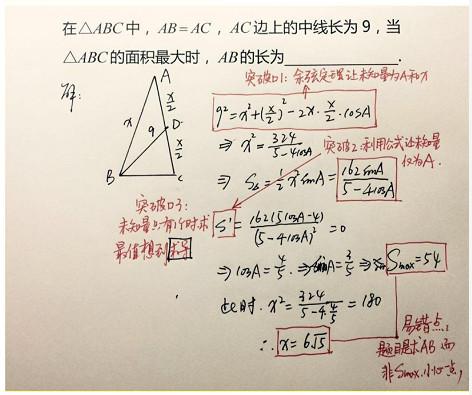 在△ABC中，AB=AC，AC边上的中线长为9，当
△ABC的面积最大时，AB的长为____________.
解:
A
x
x/2
9
D
x/2
B
C
突破口1: 余弦定理让未知量为A和x
9²=x²+(x/2)²-2x·x/2·cosA
⇒ x²=324/(5-4cosA)
突破2:利用公式让未知量
仅为A.
⇒ S△=1/2x²sinA=162sinA/(5-4cosA)
突破口3:
未知量只有1个时求
最值想到求导
S'=162(5cosA-4)/(5-4cosA)²=0
⇒cosA=4/5 ⇒sinA=3/5 ⇒ Smax=54
此时. x²=324/(5-4·4/5)=180
∴ x=6√5
易错点:
题目是求AB 而
非Smax.小心一点,